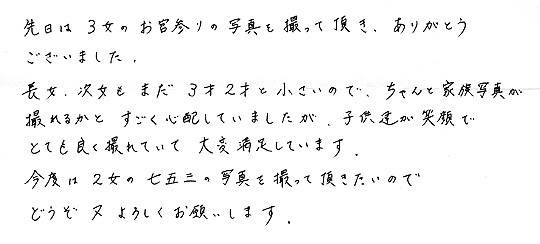 先日は3女のお宮参りの写真を撮って頂き、ありがとう
ございました。
長女、次女もまだ3才2才と小さいので、ちゃんと家族写真が
撮れるかとすごく心配していましたが、子供達が笑顔で
とても良く撮れていて大変満足しています。
今度は2女の七五三の写真を撮って頂きたいので
どうぞ又よろしくお願いします。